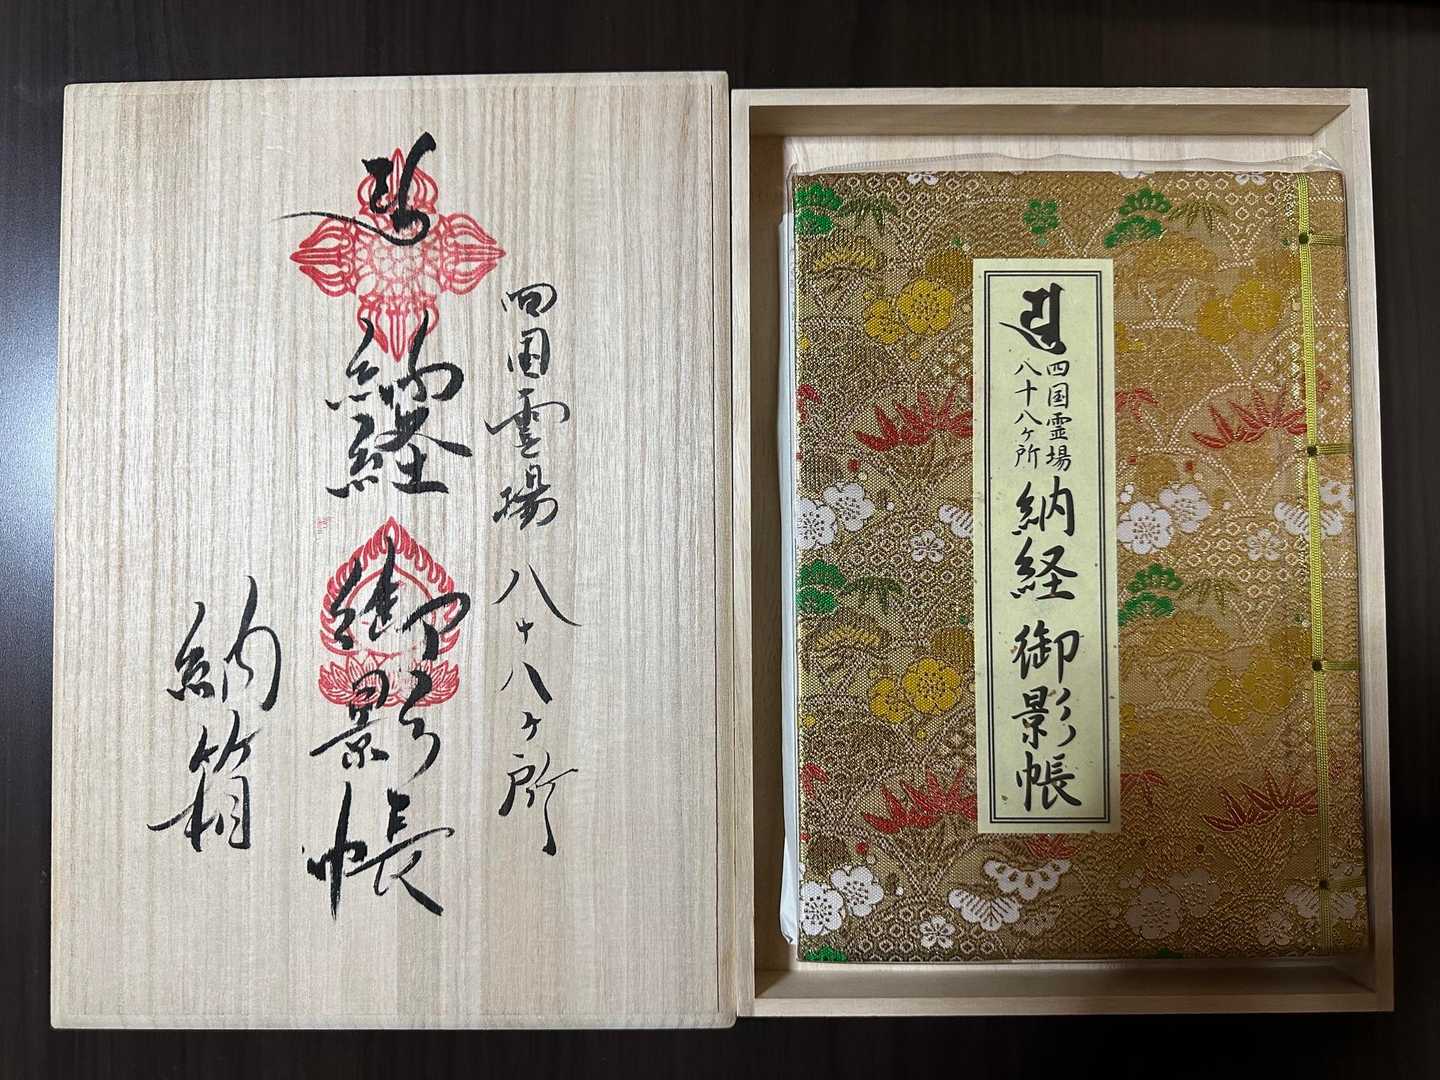 四国霊場八十八ヶ所
納経御影帳
納箱
四国霊場
八十八ヶ所
納経御影帳